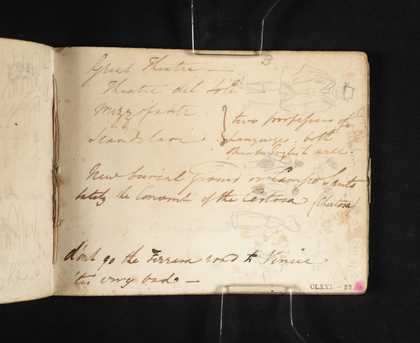 3
Great Theatre —
Theatre del Sole
Mezzofanti
two professors of
Languages, both
New burial Ground or Campo Santo
lately the Convent of the Certosa (Chertosa
dont go the Ferrara road to Venice
'tis very bad —
CLXXI - 23